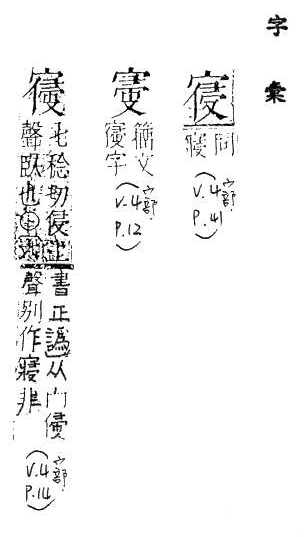 字彙
寑
同
寢
(宀部
V.4
P.41)
籀文
字
(宀部
V.4
P.12)
七稔切侵上
聲臥也
書正譌从宀
聲別作寢非
(宀部
V.4
P.14)